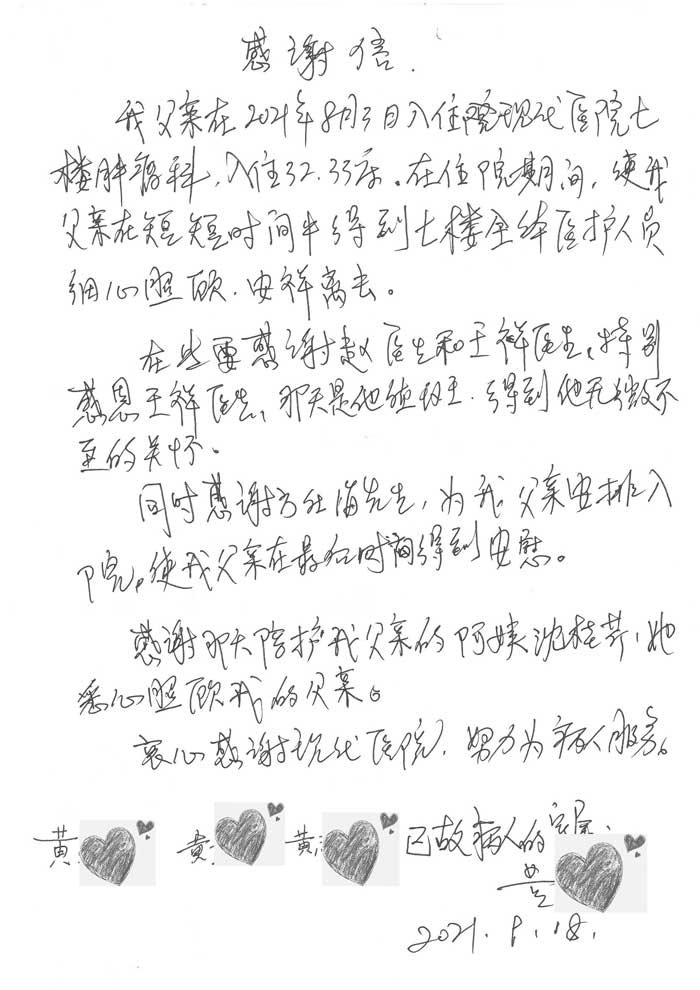 感谢信.
我父亲在2021年8月3日入住院现代医院七
楼肿瘤科,入住32.33床。在住院期间,使我
父亲在短短时间中得到七楼全体医护人员
细心照顾.安祥离去。
在此要感谢赵医生和王祥医生,特别
感恩王祥医生,那天是他值班.得到他无微不
至的关怀。
同时感谢方社海先生,为我父亲安排入
院。使我父亲在最后时间得到安慰。
感谢那天陪护我父亲的阿姨沈桂芹,她
悉心照顾我的父亲。
衷心感谢现代医院,努力为病人服务。
黄 黄 黄 已故病人的家属.
黄
2021.8.18.